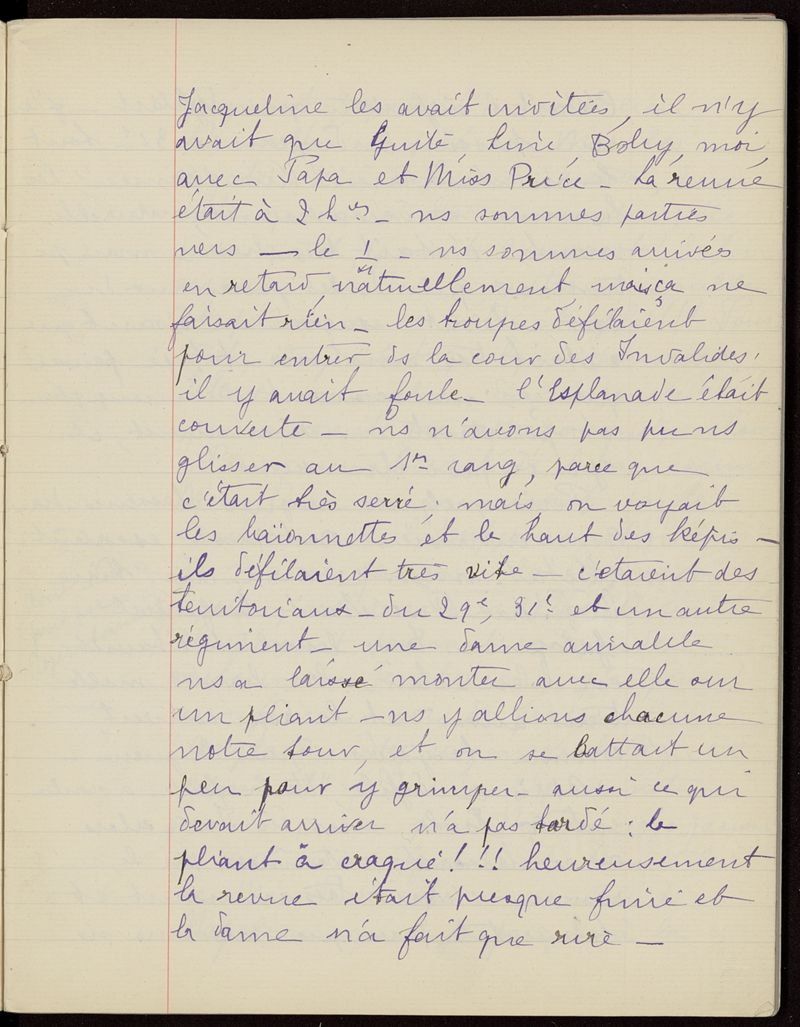 Jacqueline les avait invitées, il n'y
avait que Guite, Line, Boby, moi,
avec Papa et Miss Price – La revue
était à 2 hres – ns sommes parties
vers — le 1/4 – ns sommes arrivés
en retard, naturellement mais ça ne
faisait rien – les troupes défilaient
pour entrer ds la cour des Invalides.
il y avait foule – l'Esplanade était
couverte – ns n'avons pas pu ns
glisser au 1er rang, parce que
c'était très serré, mais on voyait
les baïonnettes et le haut des képis –
ils défilaient très vite – c'etaient des
territoriaux – du 29e, 31e et un autre
régiment – une dame aimable
ns a laissé monter avec elle sur
un pliant – ns y allions chacune
notre tour, et on se battait un
peu pour y grimper – aussi ce qui
devait arriver n'a pas tardé : le
pliant à craqué ! !! heureusement
la revue était presque finie et
la dame n'a fait que rire –